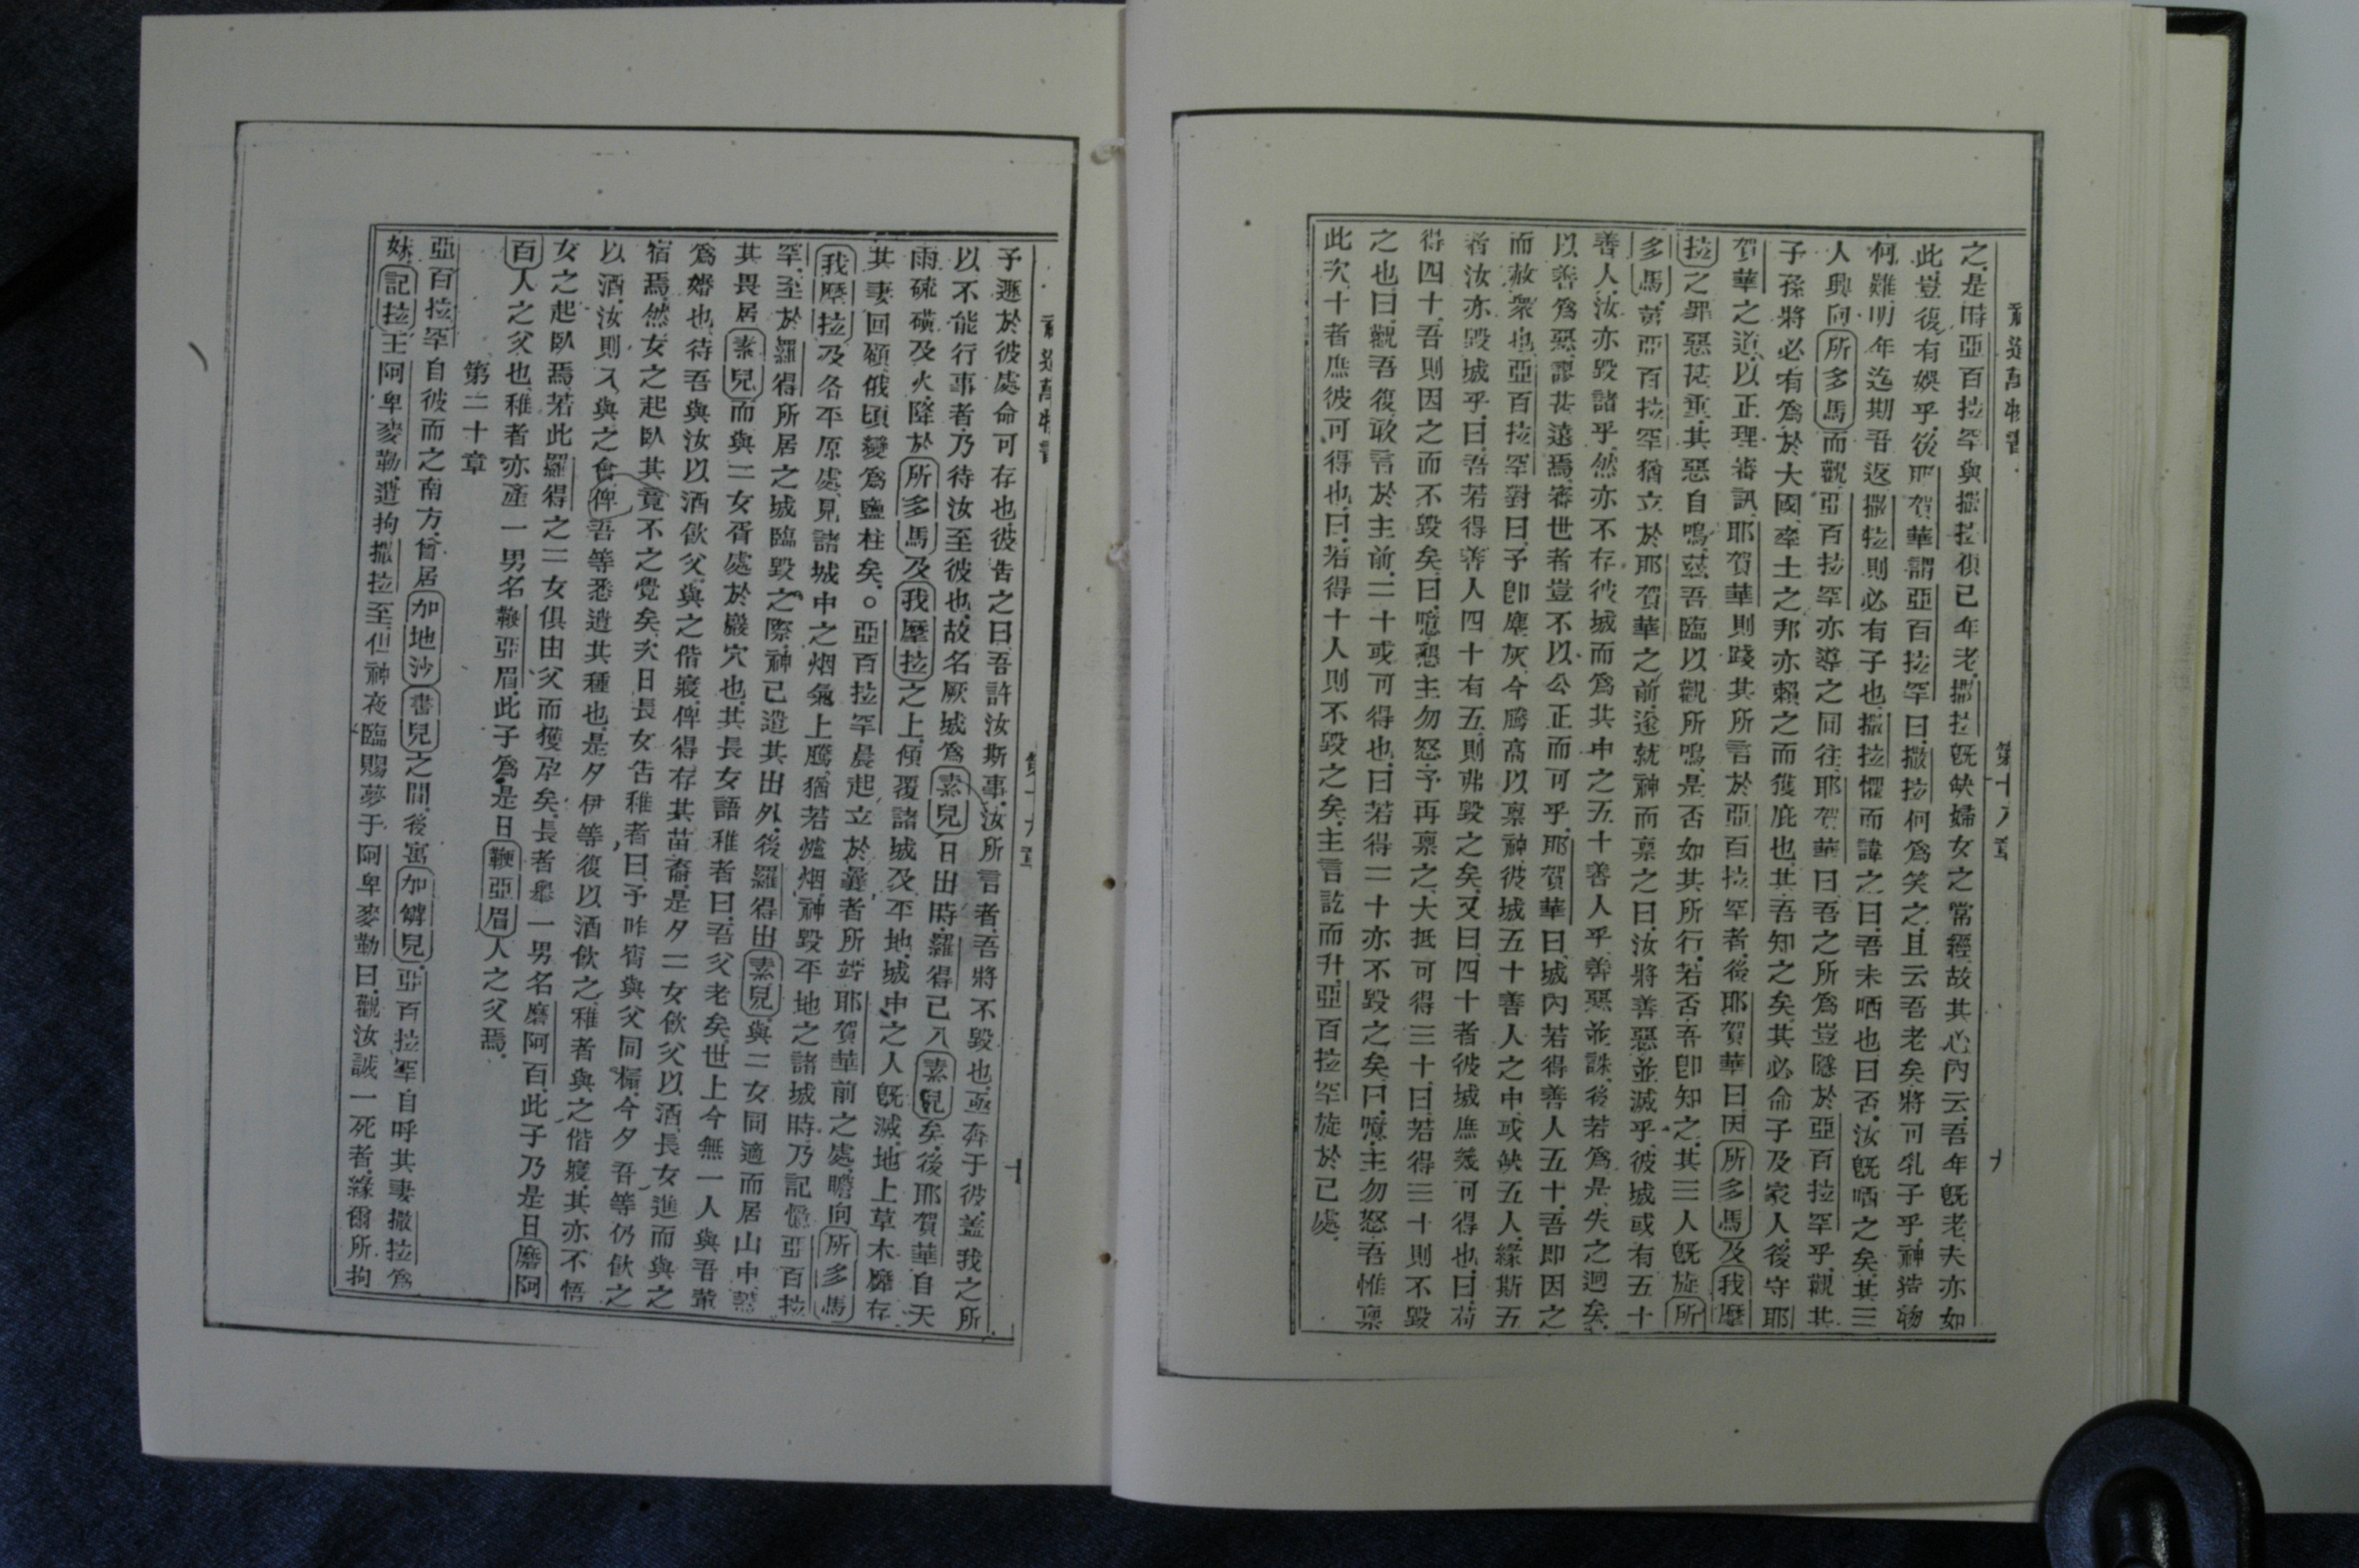 神造萬物書 第十八章 九
之是時亞百拉罕與撒拉俱已年老撒拉旣缺婦女之常經故其心內云吾年旣老夫亦如
此豈復有娛乎後耶賀華謂亞百拉罕曰撒拉何爲笑之且云吾老矣將可乳子乎神造物
何難明年迄期吾返撒拉則必有子也撒拉懼而諱之曰吾未哂也曰否汝旣哂之矣其三
人興向所多馬而觀亞百拉罕亦導之同往耶賀華曰吾之所爲豈隱於亞百拉罕乎觀其
子孫將必有爲於大國率土之邦亦賴之而獲庇也其吾知之矣其必命子及家人後守耶
賀華之道以正理審訊耶賀華則踐其所言於亞百拉罕者後耶賀華曰因所多馬及我麽
拉之罪惡甚重其惡自鳴茲吾臨以觀所鳴是否如其所行若否吾卽知之其三人旣旋所
多馬亞百拉罕猶立於耶賀華之前遂就神而禀之曰汝將善惡並滅乎彼城或有五十
善人汝亦毀諸乎然亦不存彼城而爲其中之五十善人乎善惡並誅後若爲是失之迥矣
以善爲惡謬甚遠焉審世者豈不以公正而可乎耶賀華曰城內若得善人五十吾卽因之
而赦衆也亞百拉罕對曰予卽塵灰今膽高以禀神彼城五十善人之中或缺五人緣斯五
者汝亦毀城乎曰吾若得善人四十有五則弗毀之矣又曰四十者彼城庶幾可得也曰苟
得四十吾則因之而不毀矣曰噫懇主勿怒予再禀之大抵可得三十曰若得三十則不毀
之也曰觀吾復敢言於主前二十或可得也曰若得二十亦不毀之矣曰噫主勿怒吾惟禀
此次十者庶彼可得也曰若得十人則不毀之矣主言訖而升亞百拉罕旋於己處
神造萬物書 第十九章 十
予遯於彼處命可存也彼告之曰吾許汝斯事汝所言者吾將不毀也亟奔于彼蓋我之所
以不能行事者乃待汝至彼也故名厥城爲素兒日出時羅得已入素兒矣後耶賀華自天
雨硫磺及火降於所多馬及我麽拉之上傾覆諸城及平地城中之人旣滅地上草木靡存
其妻回顧俄頃變爲鹽柱矣○亞百拉罕晨起立於曩者所竚耶賀華前之處瞻向所多馬
我麽拉及各平原處見諸城中之烟氣上騰猶若爐烟神毀平地之諸城時乃記憶亞百拉
罕至於羅得所居之城臨毀之際神已遣其出外後羅得出素兒與二女同適而居山中
其畏居素兒而與二女胥處於巖穴也其長女語稚者曰吾父老矣世上今無一人與吾輩
爲婚也待吾與汝以酒飮父與之偕寢俾得存其苗裔是夕二女飮父以酒長女進而與之
宿焉然女之起臥其竟不之覺矣次日長女告稚者曰予昨宵與父同榻今夕吾等仍飮之
以酒汝則入與之會俾吾等悉遺其種也是夕伊等復以酒飮之稚者與之偕寢其亦不悟
女之起臥焉若此羅得之二女俱由父而獲孕矣長者舉一男名磨阿百此子乃是日磨阿
百人之父也稚者亦產一男名鞭亞眉此子爲是日鞭亞眉人之父焉
第二十章
亞百拉罕自彼而之南方曾居加地沙書兒之間後寓加觧兒亞百拉罕自呼其妻撒拉爲
妹記拉王阿卑麥勒遣拘撒拉至但神夜臨賜夢于阿卑麥勒曰觀汝誠一死者緣爾所拘